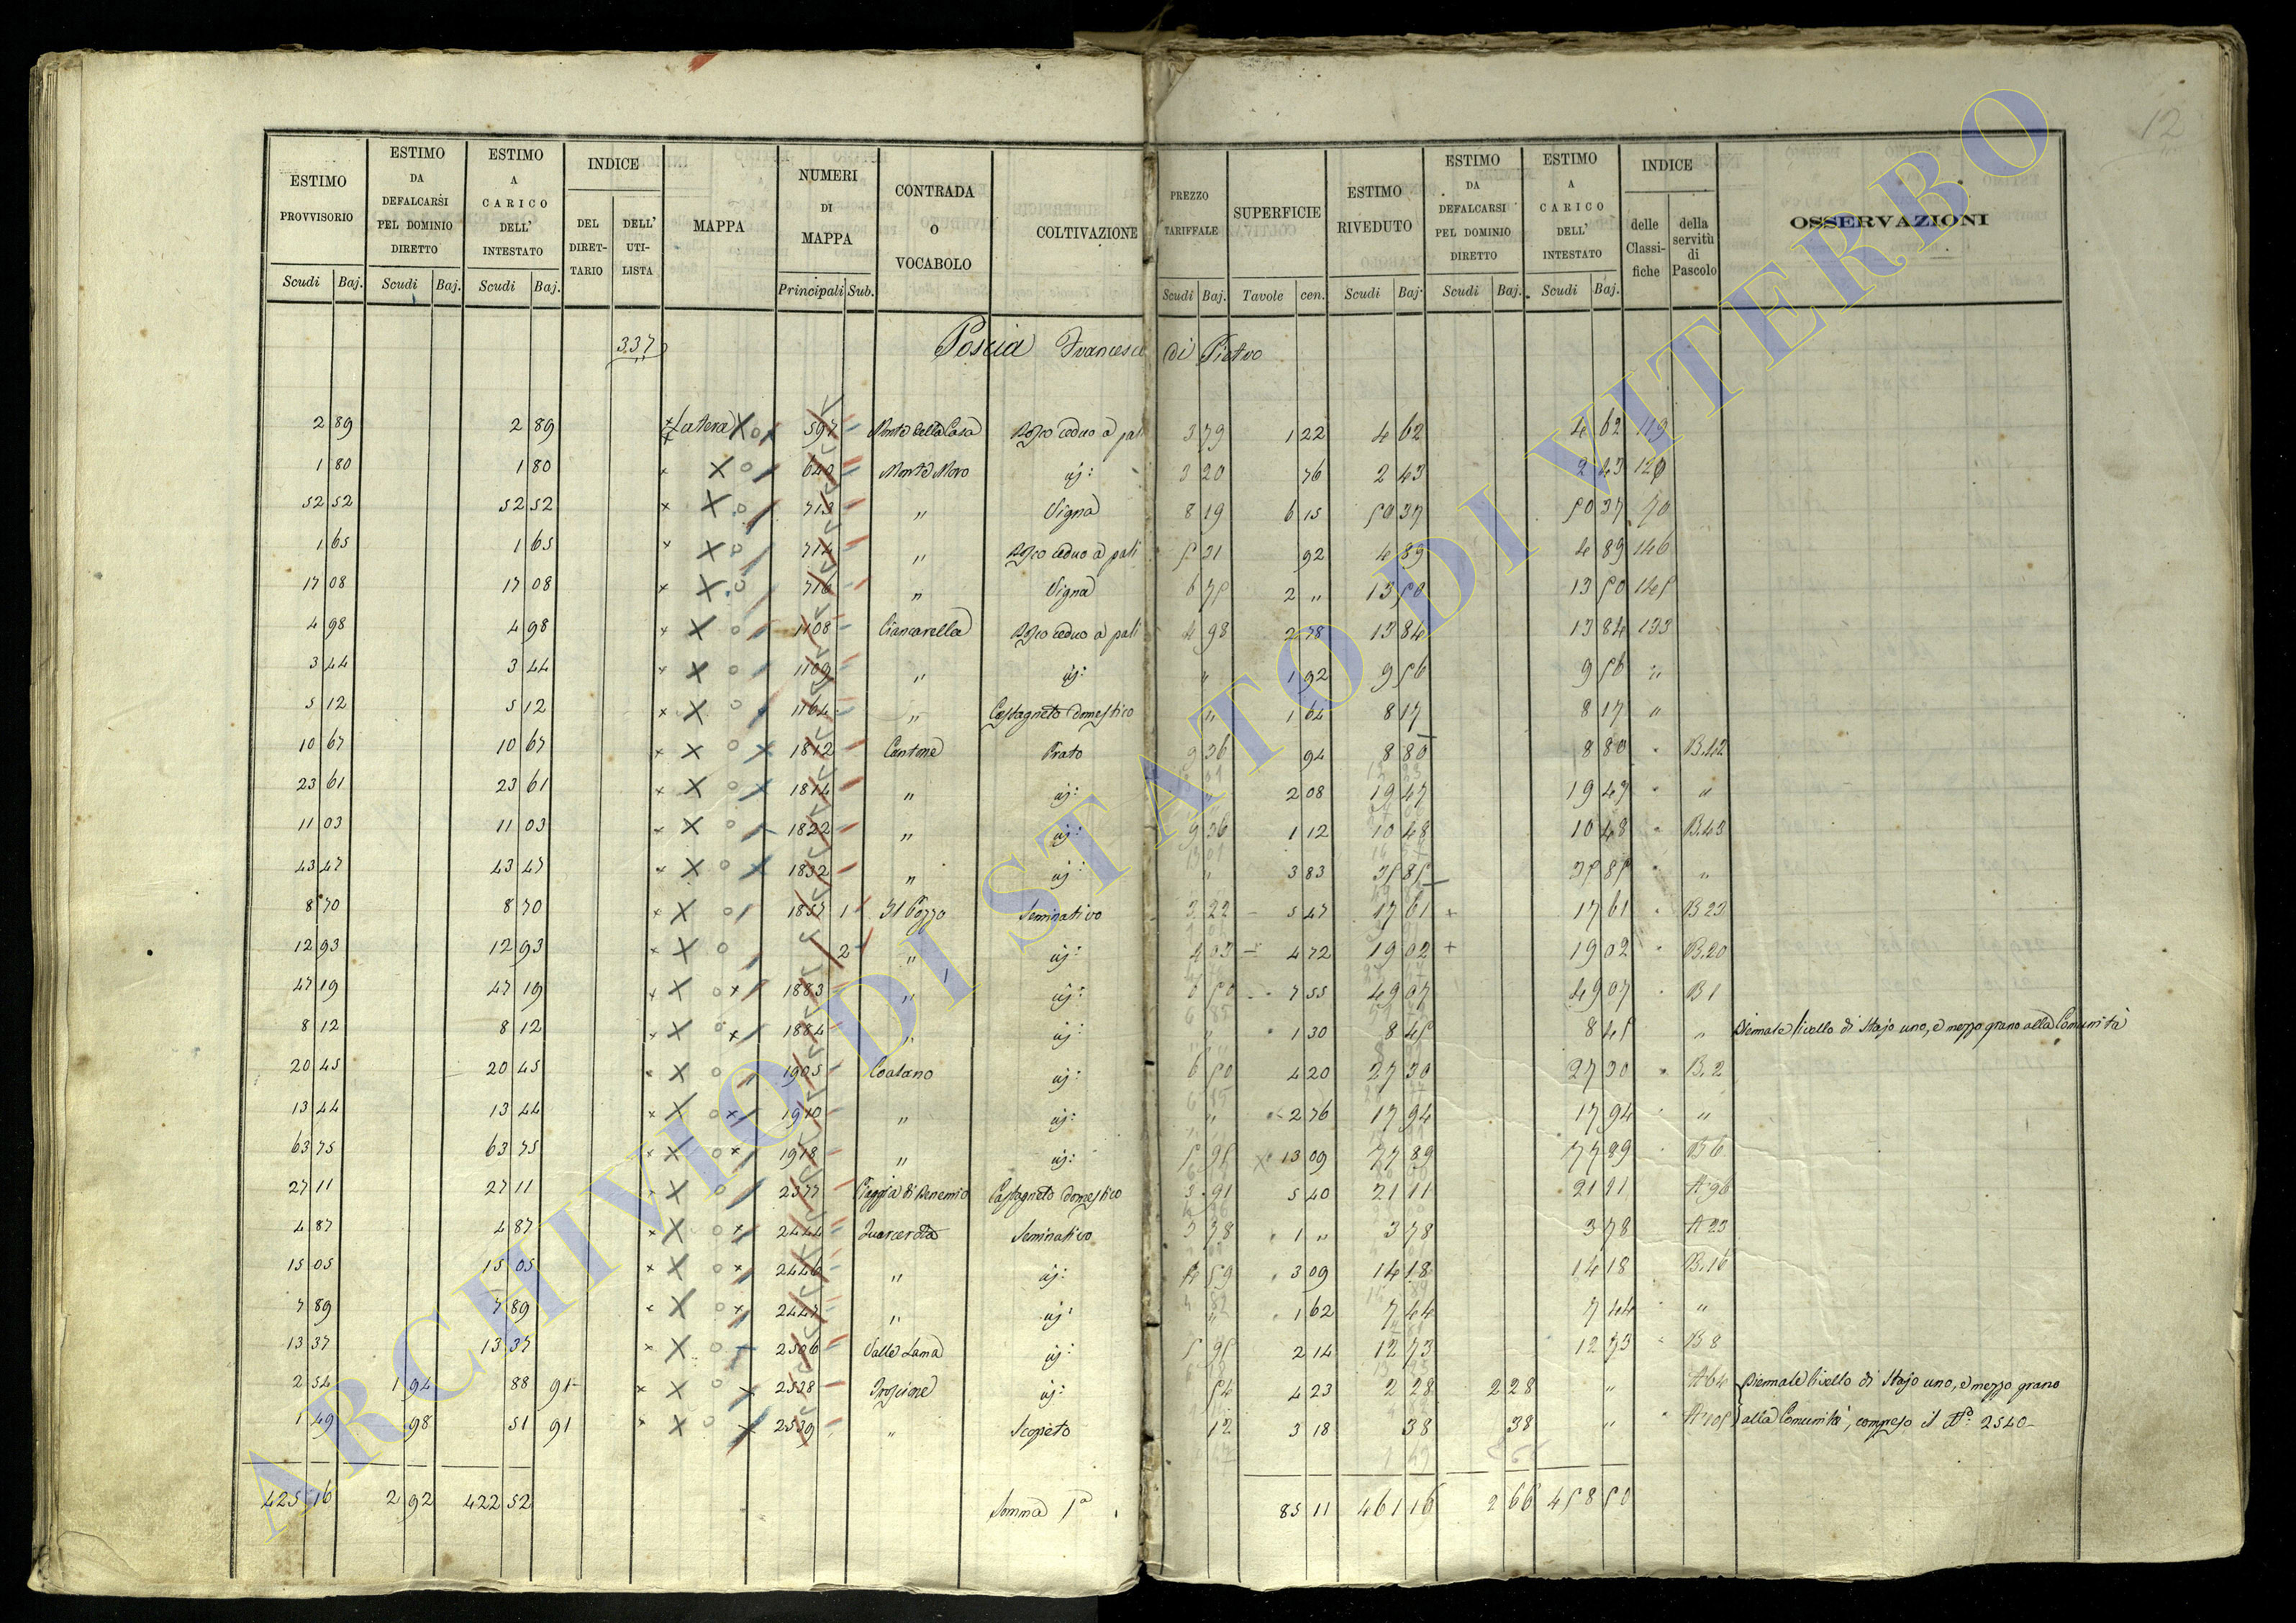 12
ESTIMO PROVVISORIO | ESTIMO DA DEFALCARSI PEL DOMINIO DIRETTO | ESTIMO A CARICO DELL' INTESTATO | INDICE | MAPPA | NUMERI DI MAPPA | CONTRADA O VOCABOLO | COLTIVAZIONE | PREZZO TARIFFALE | SUPERFICIE | ESTIMO RIVEDUTO | ESTIMO DA DEFALCARSI PEL DOMINIO DIRETTO | ESTIMO A CARICO DELL' INTESTATO | INDICE | OSSERVAZIONI
DEL DIRETTARIO | DELL' UTILISTA | delle Classifiche | della servitù di Pascolo
Scudi | Baj. | Scudi | Baj. | Scudi | Baj. | Principali | Sub. | Scudi | Baj. | Tavole | cen. | Scudi | Baj. | Scudi | Baj. | Scudi | Baj.
337 Poscia Francesco di Pietro
2 89 | 2 89 | Latera | 597 | Monte della Casa | Bosco ceduo a pali | 3 79 | 1 22 | 4 62 | 4 62 | 119
1 80 | 1 80 | 640 | Monte Moro | id: | 3 20 | 76 | 2 43 | 2 43 | 120
52 52 | 52 52 | 713 | " | Vigna | 8 19 | 6 15 | 50 37 | 50 37 | 70
1 65 | 1 65 | 714 | " | Bosco ceduo a pali | 5 31 | 92 | 4 89 | 4 89 | 146
17 08 | 17 08 | 716 | " | Vigna | 6 75 | 2 " | 13 50 | 13 50 | 145
4 98 | 4 98 | 1108 | Ciancarella | Bosco ceduo a pali | 4 98 | 2 78 | 13 84 | 13 84 | 133
3 44 | 3 44 | 1109 | " | id: | " | 1 92 | 9 56 | 9 56 | "
5 12 | 5 12 | 1164 | " | Castagneto domestico | " | 1 64 | 8 17 | 8 17 | "
10 67 | 10 67 | 1812 | Cantone | Prato | 9 36 | 94 | 8 80 | 8 80 | B.42
23 61 | 23 61 | 1814 | " | id: | " | 2 08 | 19 47 | 19 47 | "
11 03 | 11 03 | 1822 | " | id: | 9 36 | 1 12 | 10 48 | 10 48 | B.43
43 47 | 43 47 | 1832 | " | id: | " | 3 83 | 35 85 | 35 85 | "
8 70 | 8 70 | 1857 | 1 | Il Pozzo | Seminativo | 3 22 | 5 47 | 17 61 | 17 61 | B 23
12 93 | 12 93 | 2 | " | id: | 4 03 | 4 72 | 19 02 | 19 02 | B.20
47 19 | 47 19 | 1883 | " | id: | 6 50 | 7 55 | 49 07 | 49 07 | B 1
8 12 | 8 12 | 1884 | " | id: | " | 1 30 | 8 45 | 8 45 | " | Biennale livello di Stajo uno, e mezzo grano alla Comunità
20 45 | 20 45 | 1905 | Coatano | id: | 6 50 | 4 20 | 27 30 | 27 30 | B.2
13 44 | 13 44 | 1910 | " | id: | " | 2 76 | 17 94 | 17 94 | "
63 75 | 63 75 | 1918 | " | id: | 5 95 | 13 09 | 77 89 | 77 89 | B 6
27 11 | 27 11 | 2377 | Piaggia di | Castagneto domestico | 3 91 | 5 40 | 21 11 | 21 11 | A 96
4 87 | 4 87 | 2444 | Seminativo | 3 78 | 1 " | 3 78 | 3 78 | A 23
15 05 | 15 05 | 2446 | " | id: | 4 59 | 3 09 | 14 18 | 14 18 | B.16
7 89 | 7 89 | 2447 | " | id: | " | 1 62 | 7 44 | 7 44 | "
13 37 | 13 37 | 2506 | Valle Lama | id: | 5 95 | 2 14 | 12 73 | 12 73 | B 8
2 54 | 1 94 | 88 | 91 | 2538 | id: | 54 | 4 23 | 2 28 | 2 28 | " | A 64 | Biennale livello di Stajo uno, e mezzo grano
1 49 | 98 | 51 | 91 | 2539 | " | Scopeto | 12 | 3 18 | 38 | 38 | " | A 105 | alla Comunità, compreso il N°: 2540
425 16 | 2 92 | 422 52 | Somma Pª | 85 11 | 461 16 | 2 66 | 458 50
ARCHIVIO DI STATO DI VITERBO